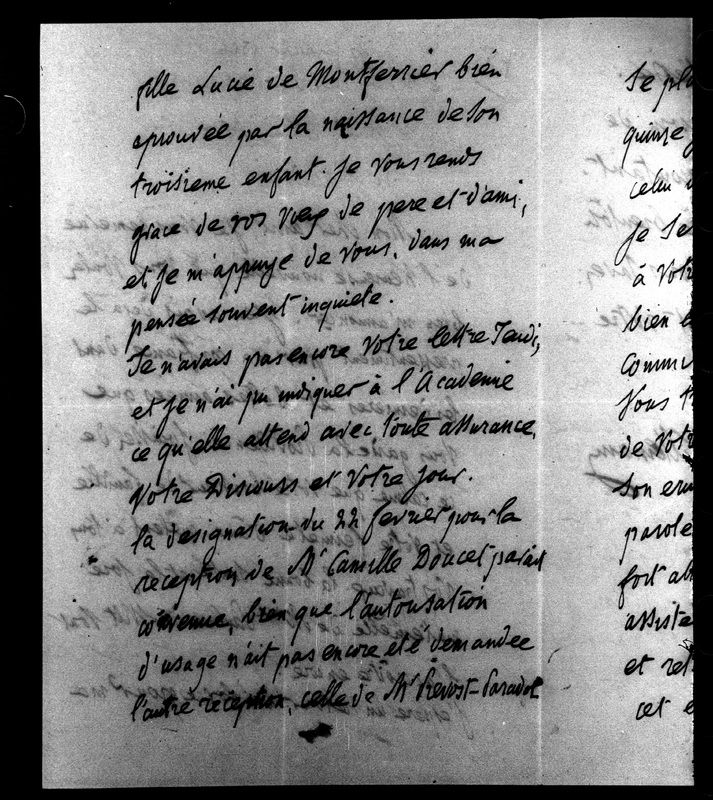 fille Lucie de Montferrier bien
eprouvée par la naissance de son
troisieme enfant. je vous rends
grace de vos vœux de pere et d'ami,
et je m'appuye de vous, dans ma
pensée souvent inquiete.
Je n'avais pas encore votre lettre Jeudi,
et je n'ai pu indiquer à l'Academie
ce qu'elle attend avec toute assurance,
Votre Discours et Votre jour.
la designation du 22 fevrier pour la
reception de Mr Camille Doucet parait
convenue, bien que l'autorisation
d'usage n'ait pas encore eté demandée
l'autre réception, celle de Mr Prevost-Paradol
Se pl
quinze
celui
je Se
à Votr
bien
Commu
Vous
de Votr
Son eru
parole
fort ab
assiste
et ret
cet e